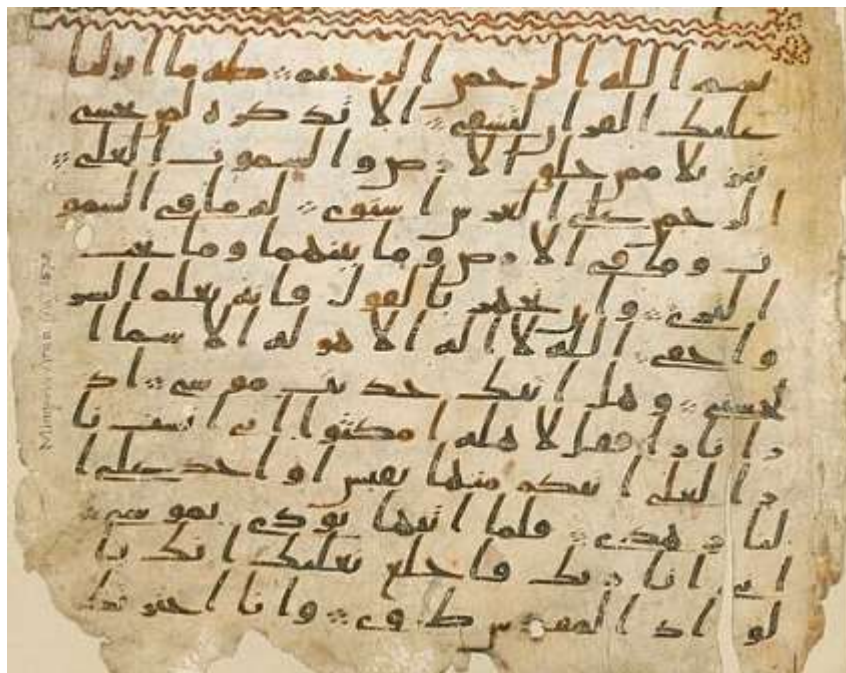 بسم الله الرحمن الرحيم طه ما انزلنا
عليك القران لتشقى الا تذكره لمن يخشى
تنزيلا ممن خلق الارض والسموت العلى
الرحمن على العرش استوى له ما في السمو
ت وما في الارض وما بينهما وما تحت
الثرى وان تجهر بالقول فانه يعلم السر
واخفى الله لا اله الا هو له الاسما ا
لحسنى وهل اتيك حديث موسى اذ
را نارا فقل لاهله امكثوا اني انست نا
را لعلي اتيكم منها بقبس او اجد على ا
لنار هدى فلما اتيها نودي يموسى
اني انا ربك فاخلع نعليك انك با
لواد المقدس طوى وانا اخترتك